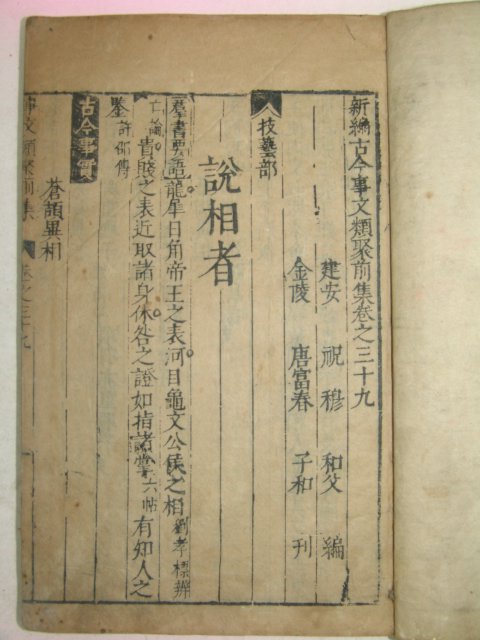 新編古今事文類聚前集卷之三十九
建安 祝穆 和父 編
金陵 唐富春 子和 刊
技藝部
說相者
羣書要語龍犀日角帝王之表河目龜文公侯之相劉孝標辨
亡論貴賤之表近取諸身休咎之證如指諸掌六帖有知人之
鑒許邵傳
古今事實
蒼頡異相
事文類聚前集 卷之三十九